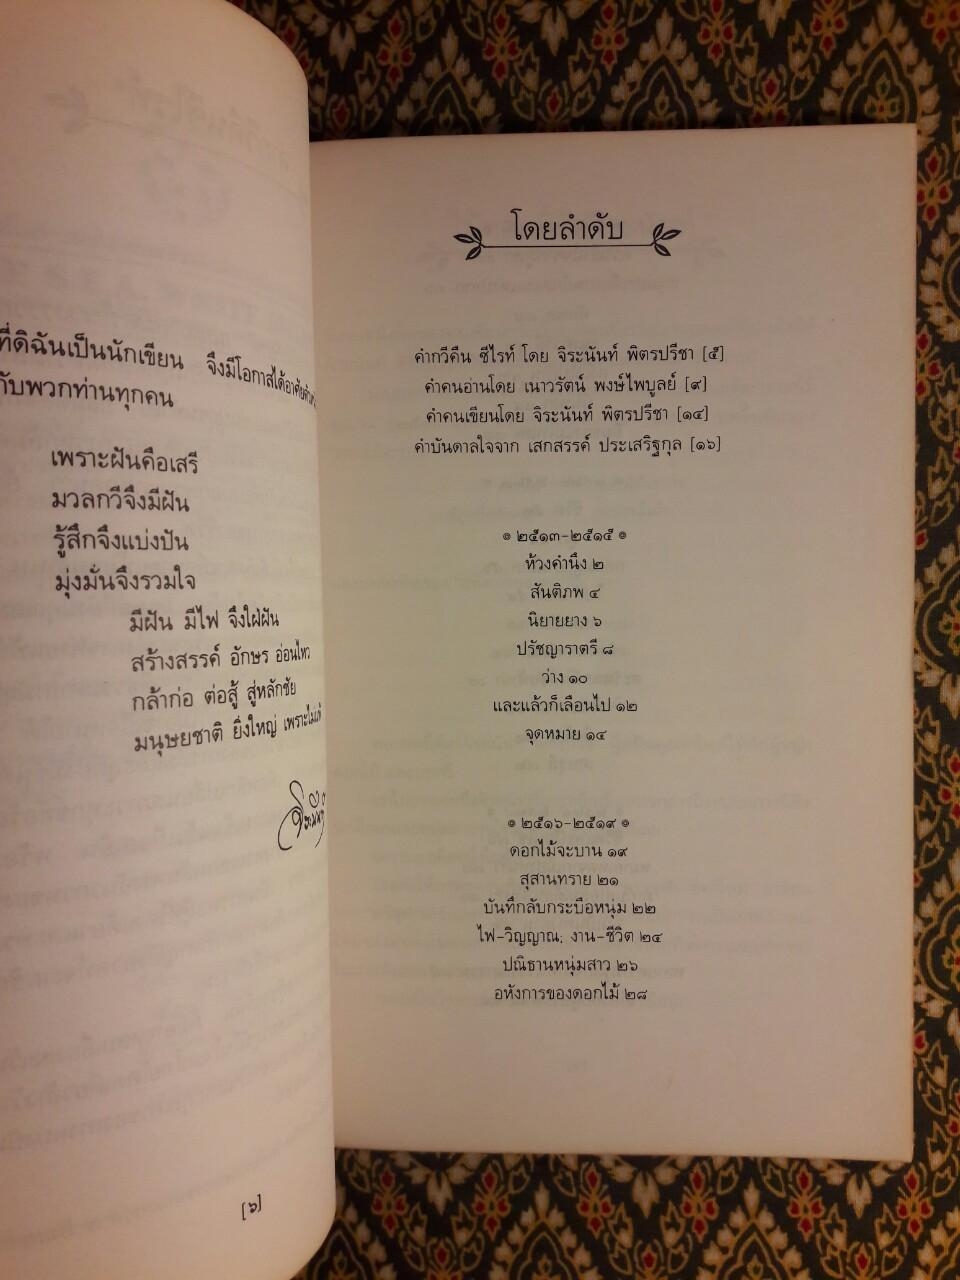 ที่ดิฉันเป็นนักเขียน จึงมีโอกาสได้อาศัย
กับพวกท่านทุกคน
เพราะฝันคือเสรี
มวลกวีจึงมีฝัน
รู้สึกจึงแบ่งปัน
มุ่งมั่นจึงรวมใจ
มีฝัน มีไฟ จึงใฝ่ฝัน
สร้างสรรค์ อักษร อ่อนไหว
กล้าก่อ ต่อสู้ สู่หลักชัย
มนุษยชาติ ยิ่งใหญ่ เพราะไม่แพ้
[๖]
โดยลำดับ
คำกวีคืน ซีไรท์ โดย จิระนันท์ พิตรปรีชา [๕]
คำคนอ่านโดย เนาวรัตน์ พงษ์ไพบูลย์ [๙]
คำคนเขียนโดย จิระนันท์ พิตรปรีชา [๑๔]
คำบันดาลใจจาก เสกสรรค์ ประเสริฐกุล [๑๖]
๏ ๒๕๑๓-๒๕๑๕ ๏
ห้วงคำนึง ๒
สันติภพ ๔
นิยายยาง ๖
ปรัชญาราตรี ๘
ว่าง ๑๐
และแล้วก็เลือนไป ๑๒
จุดหมาย ๑๔
๏ ๒๕๑๖-๒๕๑๙ ๏
ดอกไม้จะบาน ๑๙
สุสานทราย ๒๑
บันทึกลับกระบือหนุ่ม ๒๒
ไฟ-วิญญาณ; งาน-ชีวิต ๒๔
ปณิธานหนุ่มสาว ๒๖
อหังการของดอกไม้ ๒๘